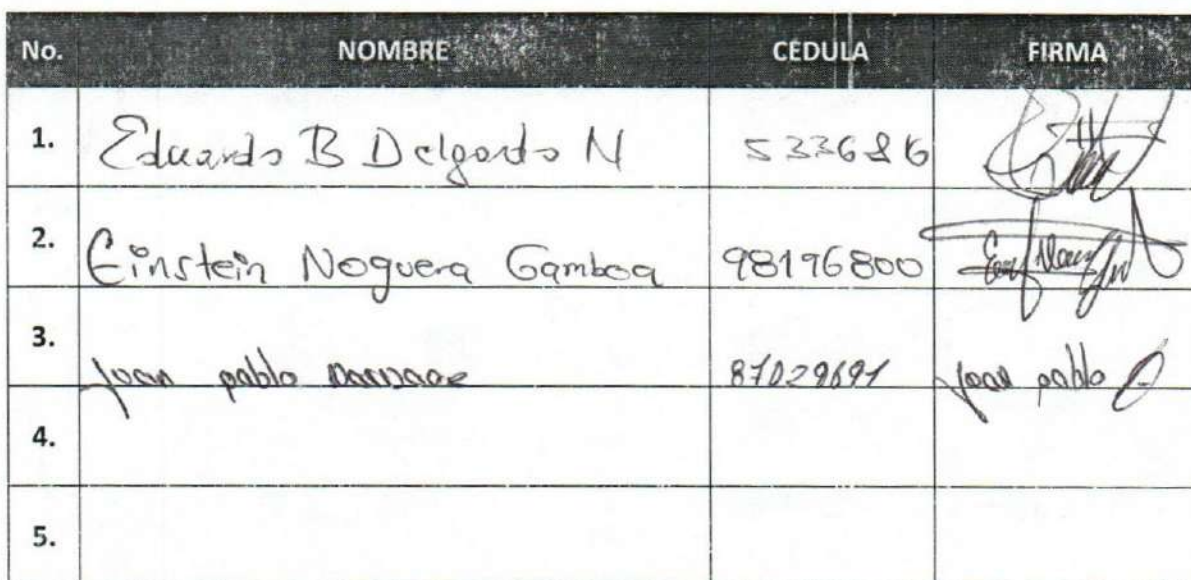 No. NOMBRE CEDULA FIRMA
1. Eduardo B Delgado N 5233686
2. Einstein Noguera Gamboa 98196800
3. Juan pablo Narvaez 87029691 Juan pablo
4.
5.